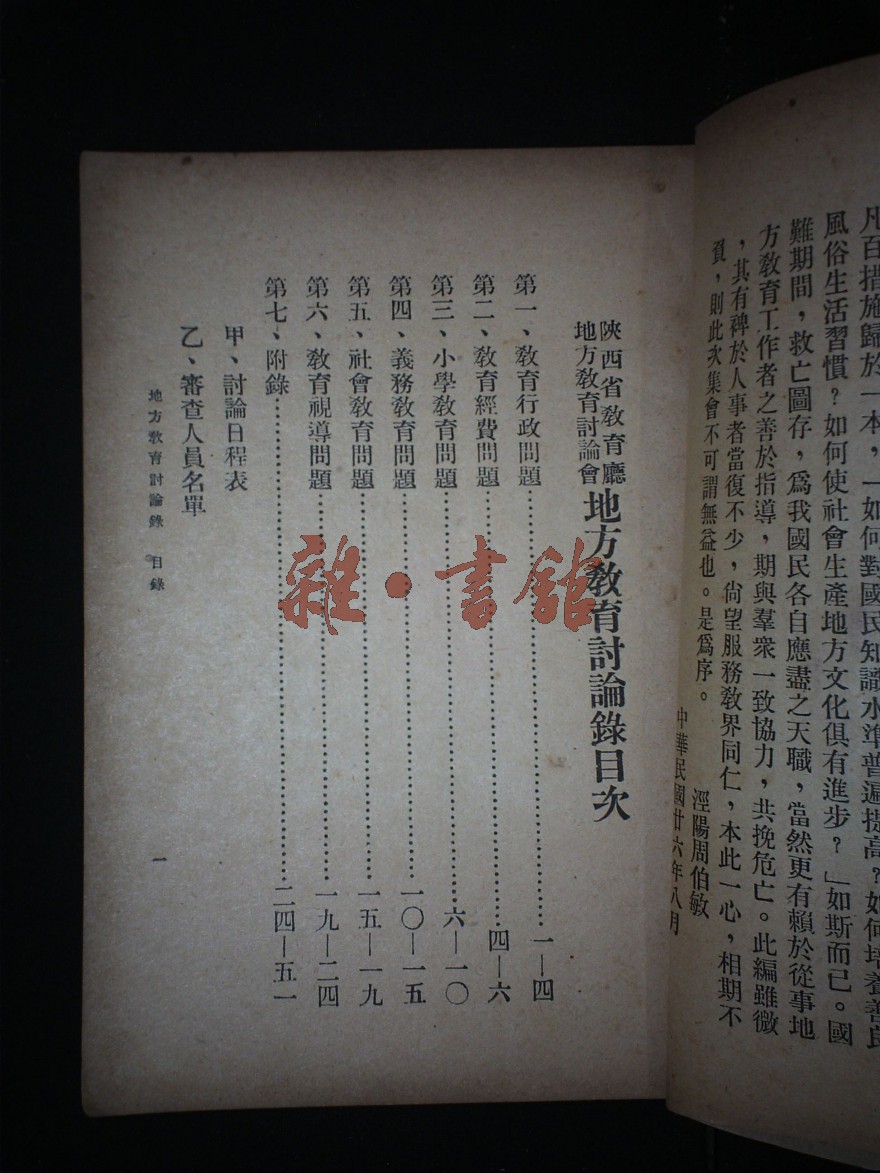 凡百措施歸於一本，一如何對國民知識水準普遍提高？如何培養善良
風俗生活習慣？如何使社會生產地方文化俱有進步？」如斯而已。國
難期間，救亡圖存，爲我國民各自應盡之天職，當然更有賴於從事地
方敎育工作者之善於指導，期與羣衆一致協力，共挽危亡。此編雖微
，其有裨於人事者當復不少，尙望服務敎界同仁，本此一心，相期不
頁，則此次集會不可謂無益也。是爲序。
涇陽周伯敏
中華民國廿六年八月
陝西省敎育廳
地方敎育討論會
地方敎育討論錄目次
第一、敎育行政問題……一—四
第二、敎育經費問題……四—六
第三、小學敎育問題……六—一〇
第四、義務敎育問題……一〇—一五
第五、社會敎育問題……一五—一九
第六、敎育視導問題……一九—二四
第七、附錄……二四—五一
甲、討論日程表
乙、審查人員名單
地方敎育討論錄 目錄
一
雜·書館